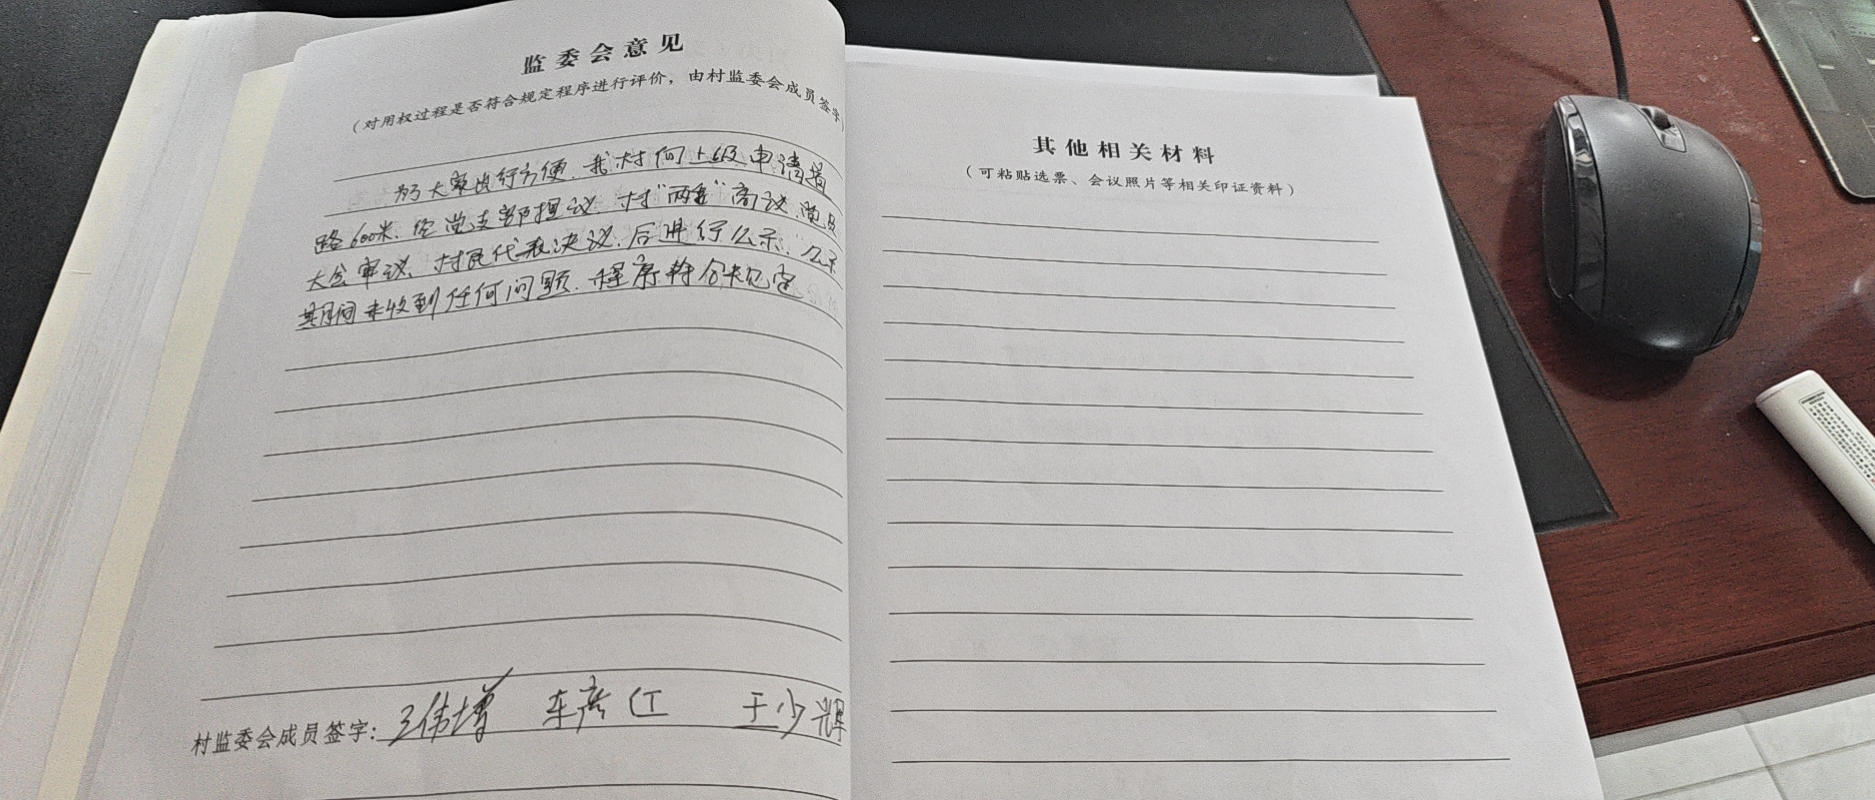 监委会意见
（对用权过程是否符合规定程序进行评价，由村监委会成员签字）
为了大家出行方便，我村向上级申请道
路600米，经党支部提议，村“两委”商议，党员
大会审议，村民代表决议，后进行公示，公示
期间未收到任何问题，程序符合规定
村监委会成员签字：王伟增 车彦红 于少辉
其他相关材料
（可粘贴选票、会议照片等相关印证资料）